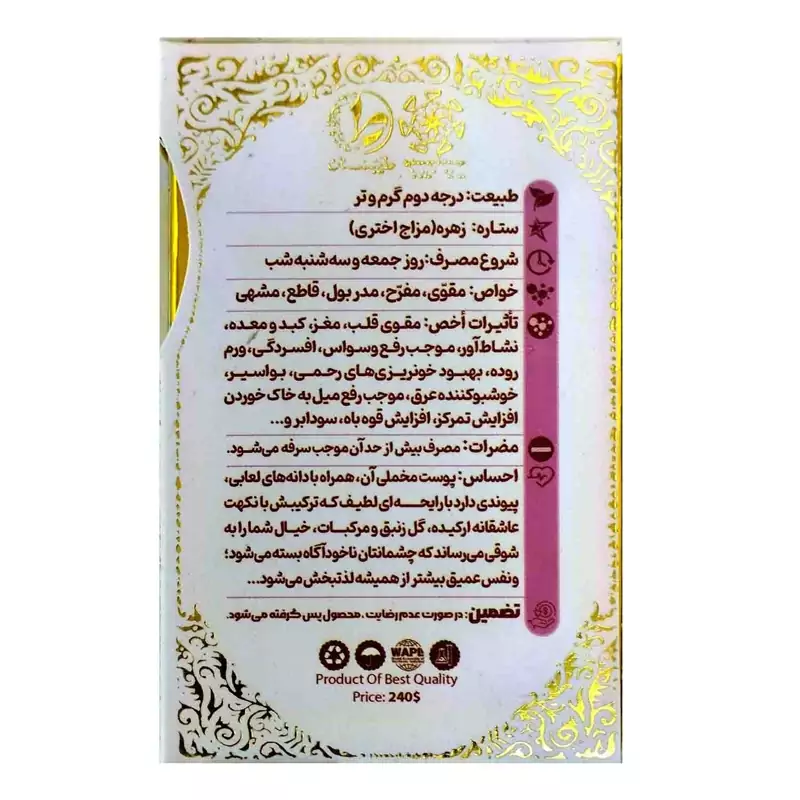 طبیعت: درجه دوم گرم و تر
ستاره: زهره(مزاج اختری)
شروع مصرف: روز جمعه و سه شنبه شب
خواص: مقوّی، مفرّح، مدر بول، قاطع، مشهی
تأثیرات أخص: مقوی قلب، مغز، کبد و معده،
نشاط آور، موجب رفع وسواس، افسردگی، ورم
روده، بهبود خونریزی‌های رحمی، بواسیر،
خوشبو کننده عرق، موجب رفع میل به خاک خوردن
افزایش تمرکز، افزایش قوه باه، سودابر و...
مضرات: مصرف بیش از حد آن موجب سرفه می‌شود.
احساس: پوست مخملی آن، همراه با دانه‌های لعابی،
پیوندی دارد با رایحه‌ای لطیف که ترکیبش با نکهت
عاشقانه ارکیده، گل زنبق و مرکبات، خیال شما را به
شوقی می‌رساند که چشمانتان ناخودآگاه بسته می‌شود؛
و نفس عمیق بیشتر از همیشه لذتبخش می‌شود...
تضمین: در صورت عدم رضایت، محصول پس گرفته می‌شود.
WAPI
Product Of Best Quality
Price: 240$